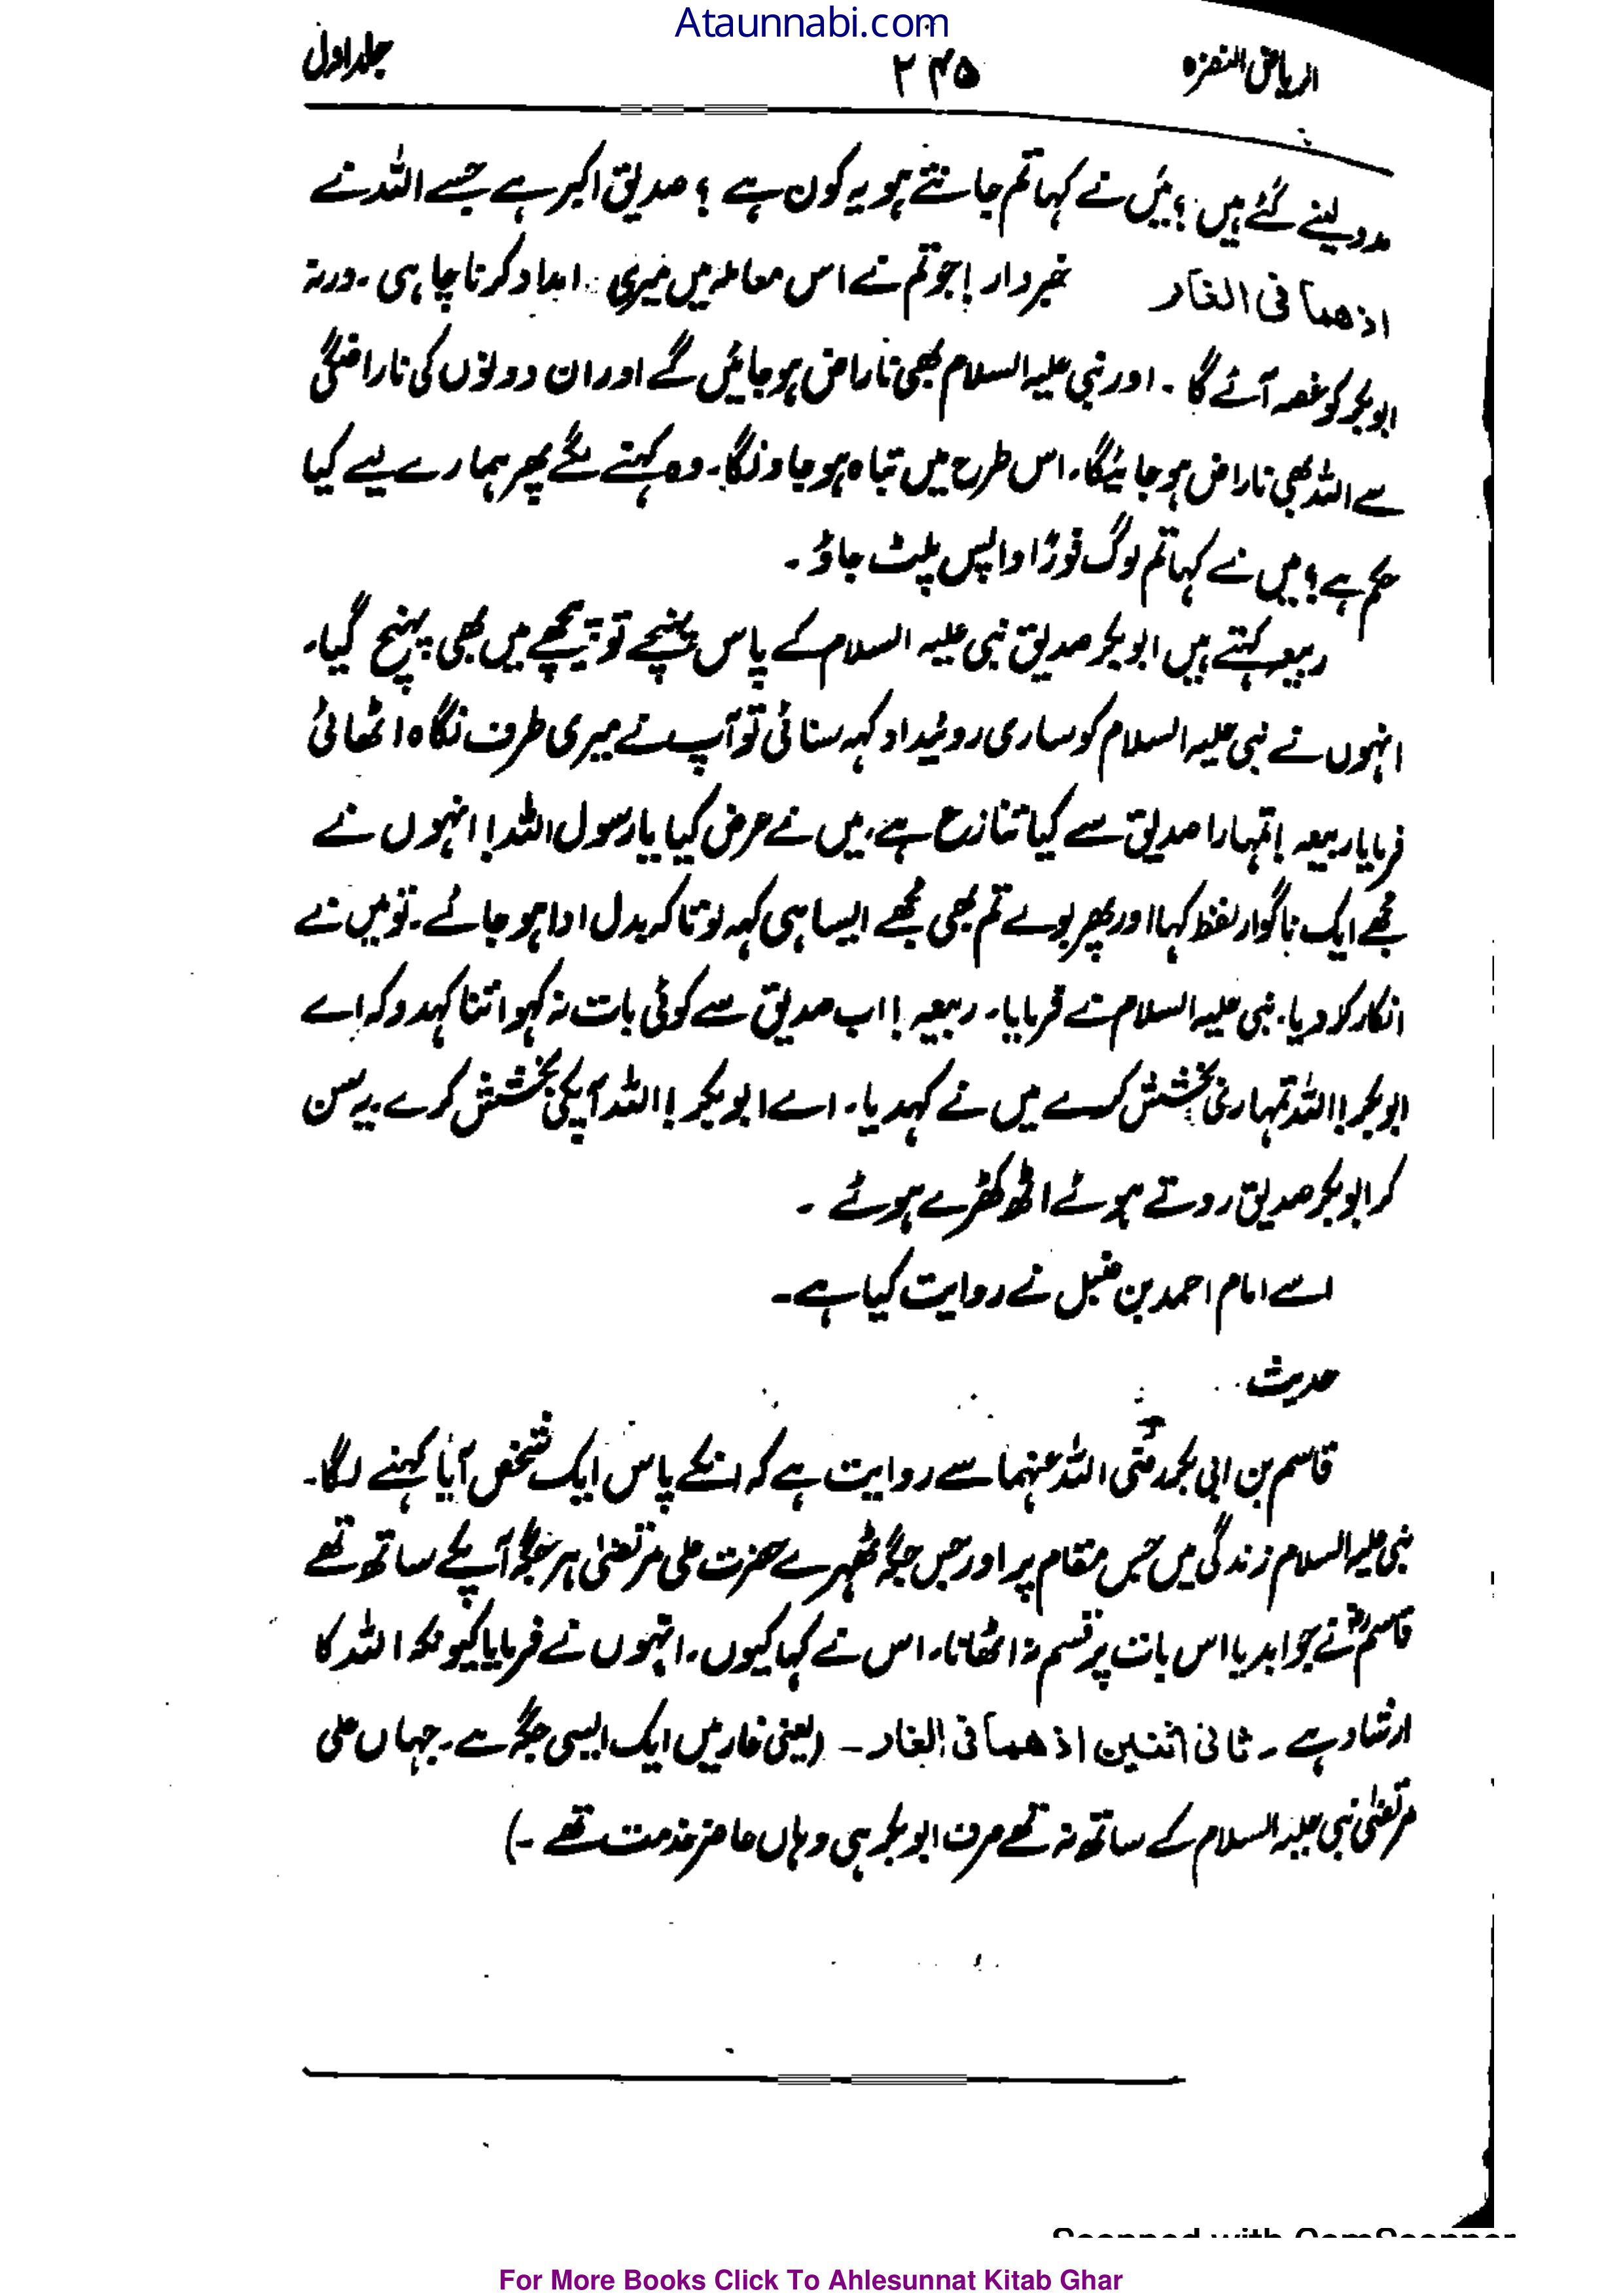 Ataunnabi.com
الریاض النضرہ ۲۴۵ جلد اول
مدد لینے گئے ہیں ؟ میں نے کہا تم جانتے ہو یہ کون ہے ؟ صدیق اکبر ہے جسے اللہ نے
اذھما فی الغار خبردار! جو تم نے اس معاملہ میں میری امداد کرنا چاہی ۔ ورنہ
ابوبکر کو غصہ آئے گا ۔ اور نبی علیہ السلام بھی ناراض ہو جائیں گے اور ان دونوں کی ناراضگی
سے اللہ بھی ناراض ہو جائیگا۔ اس طرح میں تباہ ہو جاونگا۔ وہ کہنے لگے پھر ہمارے لیے کیا
حکم ہے؟ میں نے کہا تم لوگ فورًا واپس پلٹ جاؤ ۔
ربیعہ کہتے ہیں ابوبکر صدیق نبی علیہ السلام کے پاس پہنچے تو پیچھے میں بھی پہنچ گیا۔
انہوں نے نبی علیہ السلام کو ساری روئیداد کہہ سنائی تو آپ نے میری طرف نگاہ اٹھائی
فرمایا ربیعہ ! تمہارا صدیق سے کیا تنازع ہے، میں نے عرض کیا یا رسول اللہ! انہوں نے
مجھے ایک ناگوار لفظ کہا اور پھر بولے تم بھی مجھے ایسا ہی کہہ لو تاکہ بدل ادا ہو جائے۔ تو میں نے
انکار کر دیا۔ نبی علیہ السلام نے فرمایا۔ ربیعہ ! اب صدیق سے کوئی بات نہ کہو اتنا کہدو کہ اے
ابوبکر! اللہ تمہاری بخشش کرے میں نے کہدیا۔ اے ابوبکر! اللہ آپکی بخشش کرے۔ یہ سن
کر ابوبکر صدیق روتے ہوئے اٹھ کھڑے ہوئے ۔
اسے امام احمد بن حنبل نے روایت کیا ہے۔
حدیث
قاسم بن ابی بکر رضی اللہ عنہما سے روایت ہے کہ انکے پاس ایک شخص آیا کہنے لگا۔
نبی علیہ السلام زندگی میں جس مقام پر اور جس جگہ ٹھہرے حضرت علی مرتضیٰ ہر جگہ آپکے ساتھ تھے
قاسمؓ نے جوابدیا اس بات پر قسم نہ اٹھانا۔ اس نے کہا کیوں۔ انہوں نے فرمایا کیونکہ اللہ کا
ارشاد ہے ۔ ثانی اثنین اذ ھما فی الغار ۔ (یعنی غار میں ایک ایسی جگہ ہے۔ جہاں علی
مرتضیٰ نبی علیہ السلام کے ساتھ نہ تھے صرف ابوبکر ہی وہاں حاضر خدمت تھے ۔)
Scanned with CamScanner
For More Books Click To Ahlesunnat Kitab Ghar